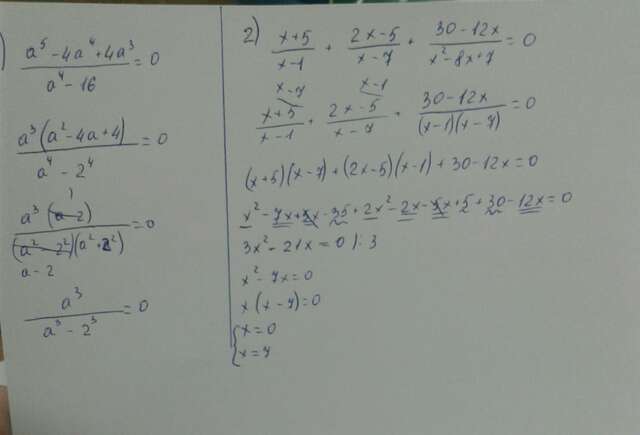 )
a⁵ - 4a⁴ + 4a³ / a⁴ - 16 = 0
a³(a² - 4a + 4) / a⁴ - 2⁴ = 0
1
a³(a - 2) / (a² - 2²)(a² + 2²) = 0
a - 2
a³ / a³ - 2³ = 0
2) x+5 / x-1 + 2x-5 / x-7 + 30-12x / x²-8x+7 = 0
x-7 x-1
x+5 / x-1 + 2x-5 / x-7 + 30-12x / (x-1)(x-7) = 0
(x+5)(x-7)+(2x-5)(x-1)+30-12x=0
x²-7x+5x-35+2x²-2x-5x+5+30-12x=0
3x²-21x=0 |:3
x²-7x=0
x(x-7)=0
{x=0
x=7